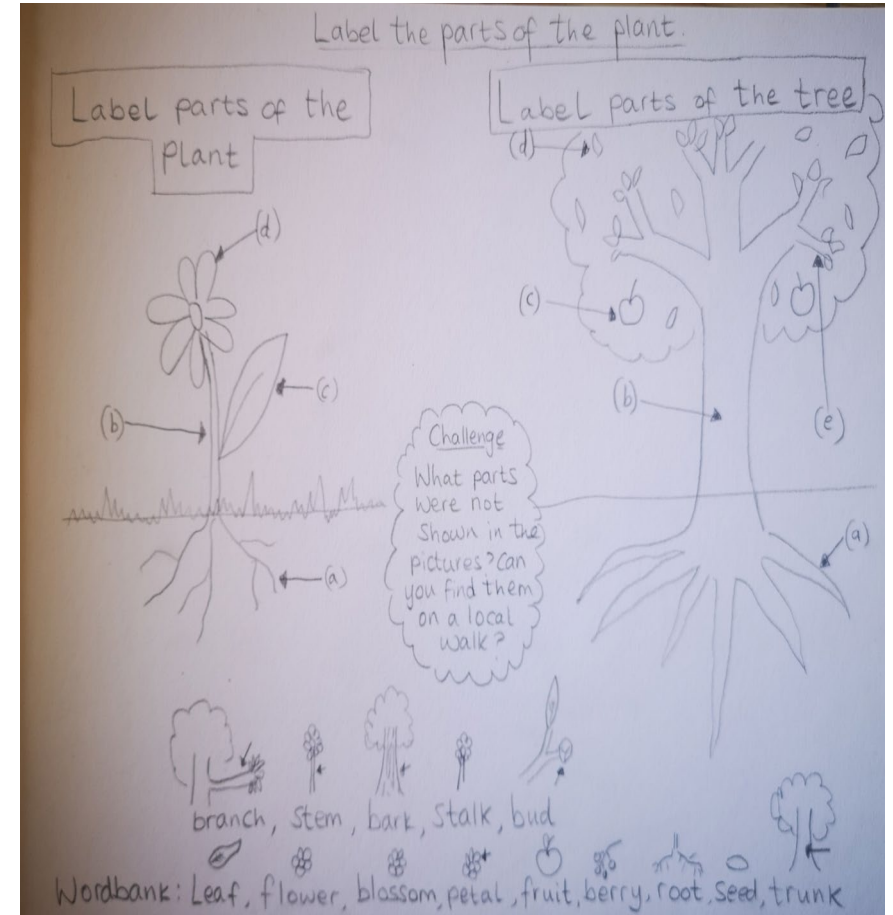 Label the parts of the plant.
Label parts of the
Plant
Label parts of the tree
(d)
(c)
(b)
(a)
(d)
(c)
(b)
(e)
(a)
Challenge
What parts
were not
shown in the
pictures? Can
you find them
on a local
walk?
branch, stem, bark, stalk, bud
Wordbank: Leaf, flower, blossom, petal, fruit, berry, root, seed, trunk